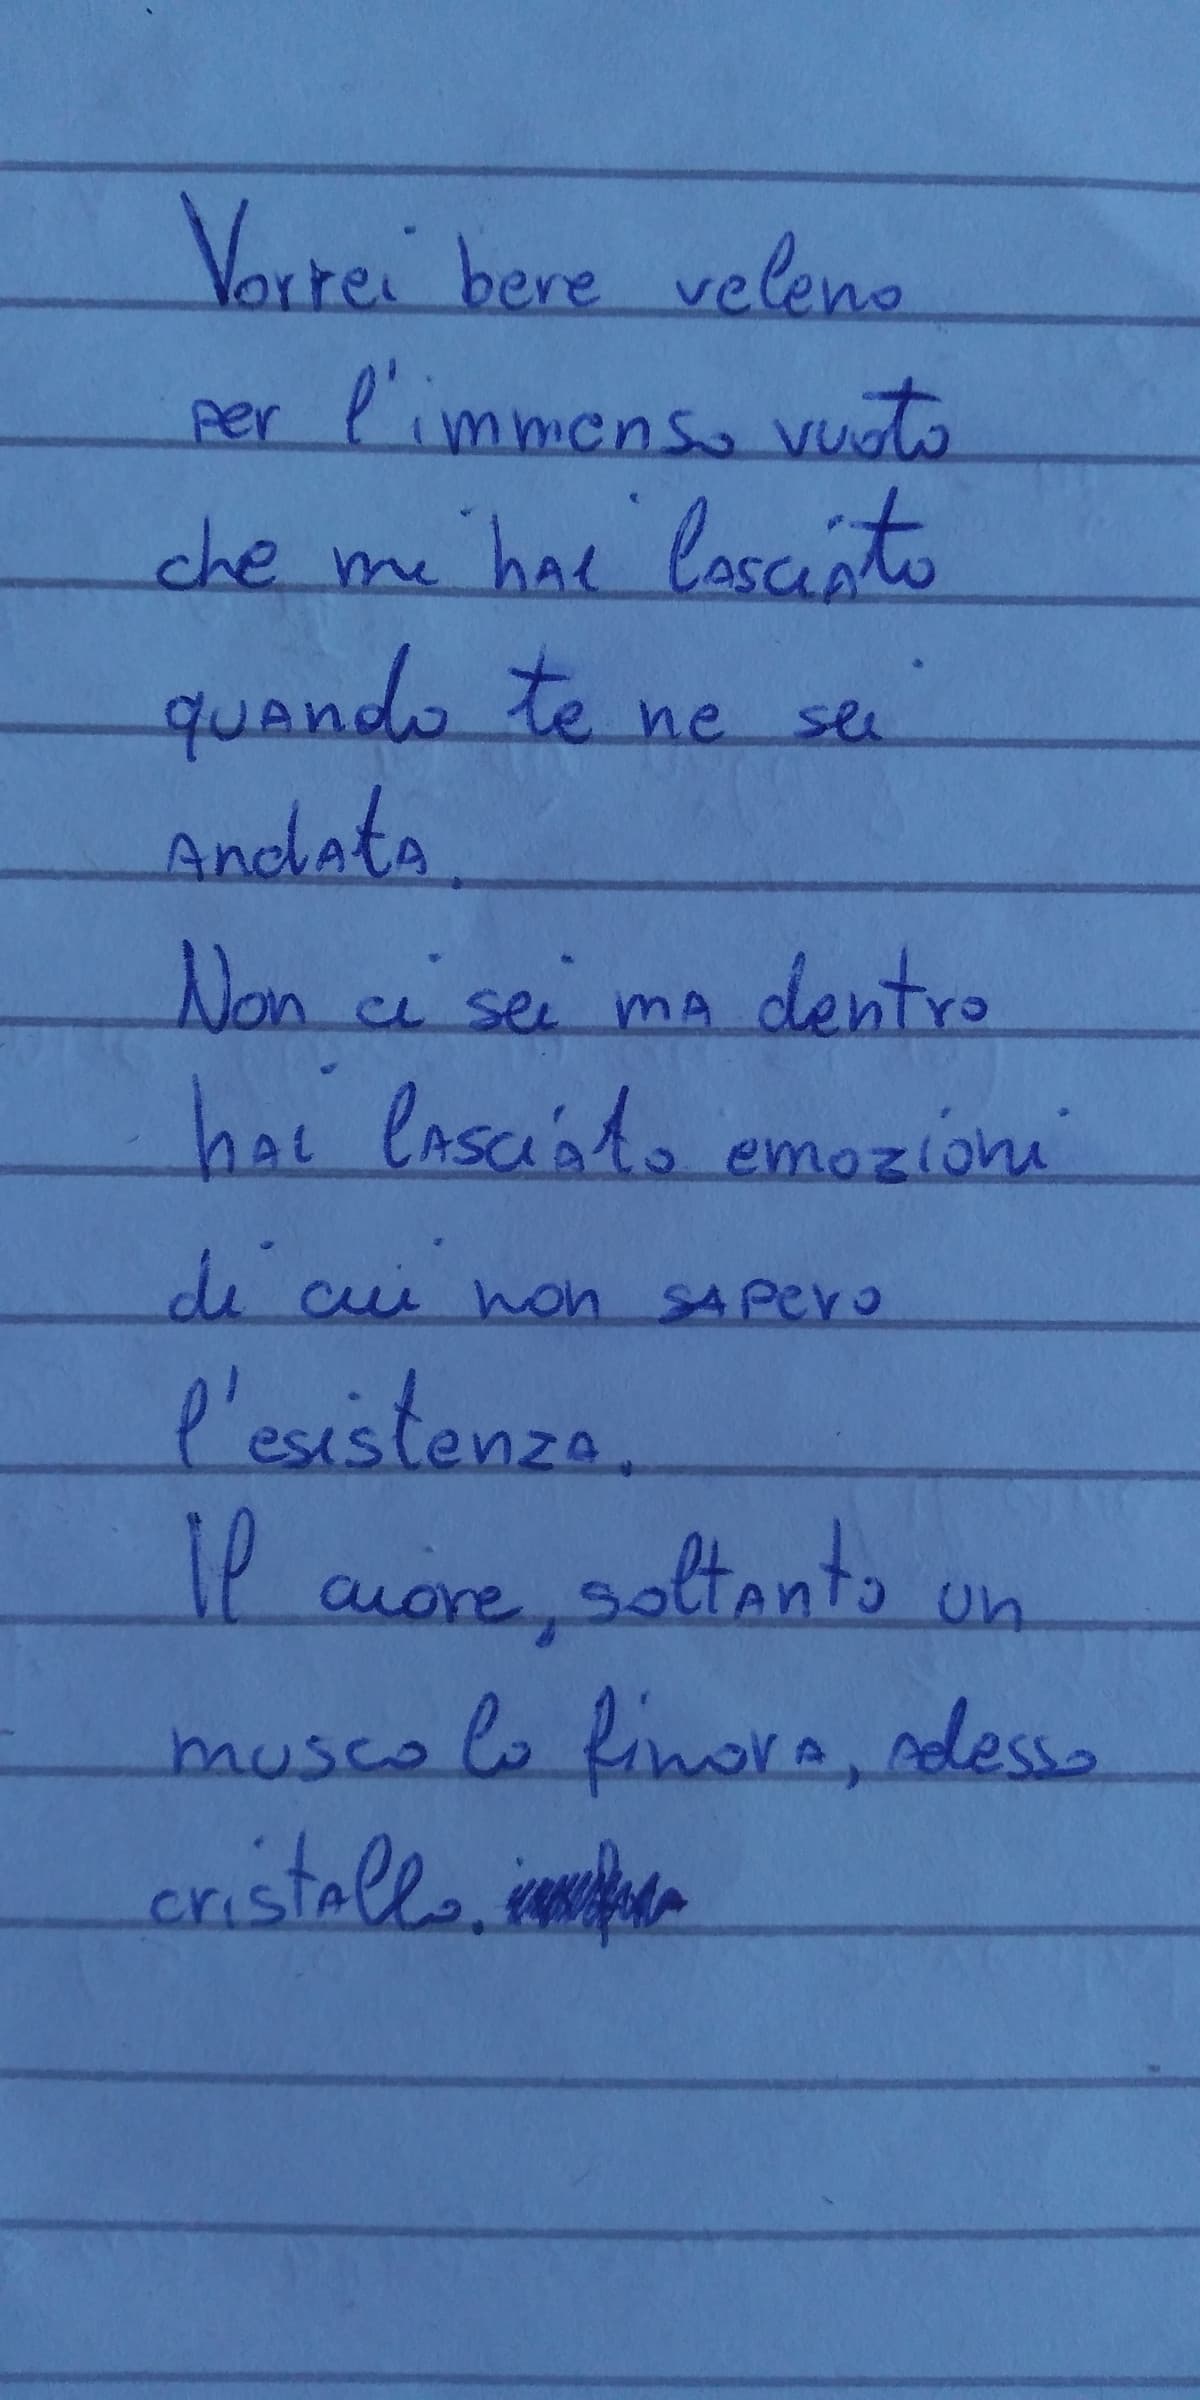 Vorrei bere veleno
per l'immenso vuoto
che mi hai lasciato
quando te ne sei
andata.
Non ci sei ma dentro
hai lasciato emozioni
di cui non sapevo
l'esistenza.
Il cuore, soltanto un
muscolo finora, adesso
cristallo.